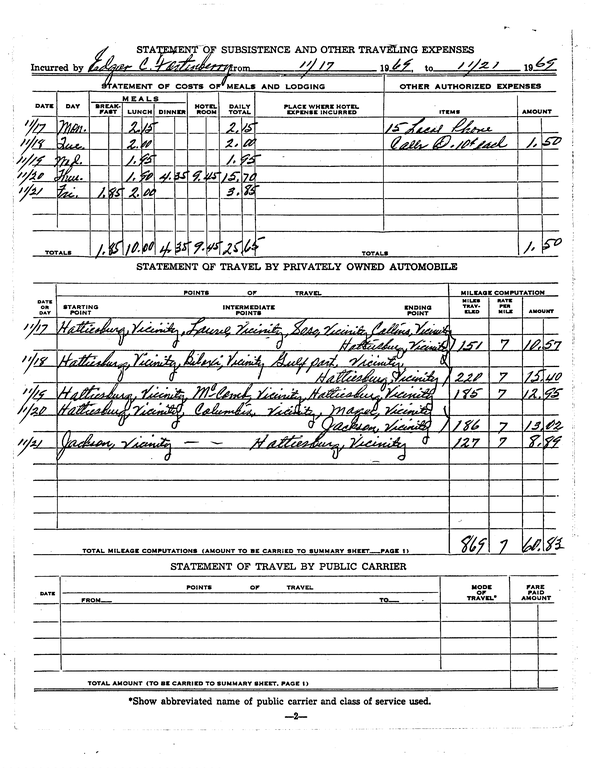 STATEMENT OF SUBSISTENCE AND OTHER TRAVELING EXPENSES
Incurred by Edgar C. Fortenberry from 11/17 1969, to 11/21 1969
STATEMENT OF COSTS OF MEALS AND LODGING OTHER AUTHORIZED EXPENSES
DATE DAY MEALS BREAK-FAST LUNCH DINNER HOTEL ROOM DAILY TOTAL PLACE WHERE HOTEL EXPENSE INCURRED ITEMS AMOUNT
11/17 Mon. 2.15 2.15 15 Local Phone
11/18 Tue. 2.00 2.00 Calls @ .10¢ each 1.50
11/19 Wed. 1.95 1.95
11/20 Thu. 1.90 4.35 9.45 15.70
11/21 Fri. 1.85 2.00 3.85
TOTALS 1.85 10.00 4.35 9.45 25.65 TOTALS 1.50
STATEMENT OF TRAVEL BY PRIVATELY OWNED AUTOMOBILE
DATE OR DAY POINTS OF TRAVEL MILEAGE COMPUTATION
STARTING POINT INTERMEDIATE POINTS ENDING POINT MILES TRAV-ELED RATE PER MILE AMOUNT
11/17 Hattiesburg, Vicinity, Laurel, Vicinity, Soso, Vicinity, Collins, Vicinity
Hattiesburg, Vicinity 151 7 10.57
11/18 Hattiesburg, Vicinity, Biloxi, Vicinity Gulfport, Vicinity,
Hattiesburg, Vicinity 220 7 15.40
11/19 Hattiesburg, Vicinity, McComb, Vicinity, Hattiesburg, Vicinity 185 7 12.95
11/20 Hattiesburg, Vicinity, Columbia, Vicinity, Magee, Vicinity
Jackson, Vicinity 186 7 13.02
11/21 Jackson, Vicinity — — Hattiesburg, Vicinity 127 7 8.89
TOTAL MILEAGE COMPUTATIONS (AMOUNT TO BE CARRIED TO SUMMARY SHEET—PAGE 1) 869 7 60.83
STATEMENT OF TRAVEL BY PUBLIC CARRIER
DATE POINTS OF TRAVEL MODE OF TRAVEL* FARE PAID AMOUNT
FROM— TO—
TOTAL AMOUNT (TO BE CARRIED TO SUMMARY SHEET, PAGE 1)
*Show abbreviated name of public carrier and class of service used.
—2—